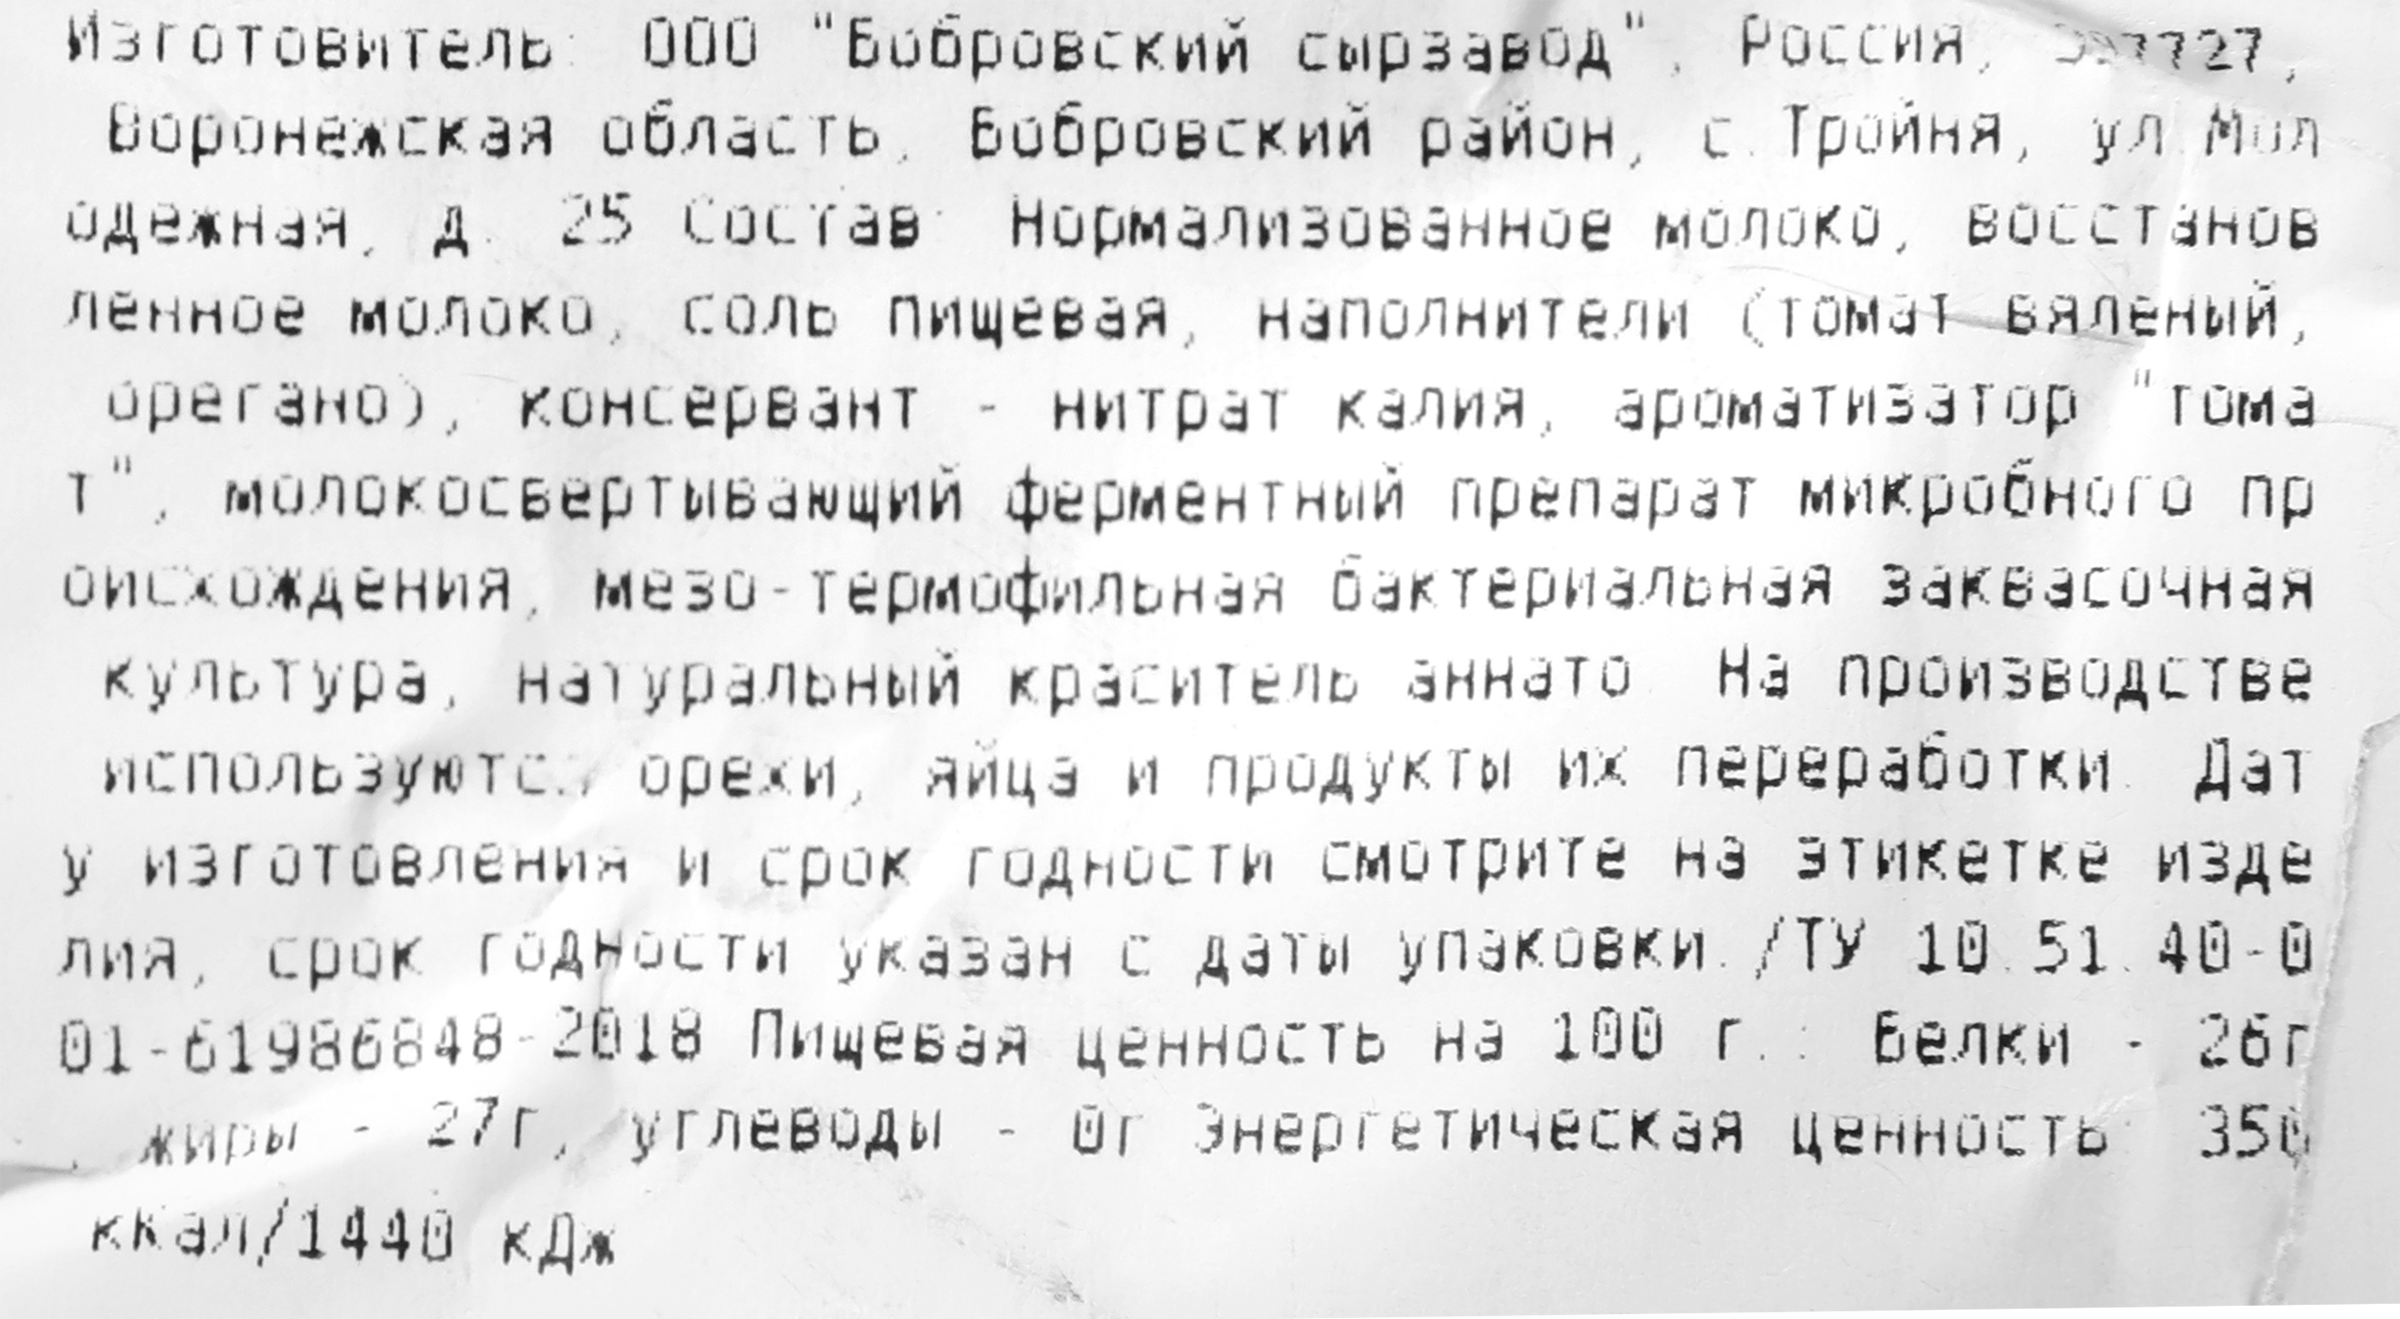 Изготовитель: ООО "Бобровский сырзавод", Россия, 397727,
Воронежская область, Бобровский район, с.Тройня, ул.Мол
одежная, д. 25 Состав: Нормализованное молоко, восстанов
ленное молоко, соль пищевая, наполнители (томат вяленый,
орегано), консервант - нитрат калия, ароматизатор "тома
т", молокосвертывающий ферментный препарат микробного пр
оисхождения, мезо-термофильная бактериальная заквасочная
культура, натуральный краситель аннато. На производстве
используются орехи, яйца и продукты их переработки. Дат
у изготовления и срок годности смотрите на этикетке изде
лия, срок годности указан с даты упаковки./ТУ 10.51.40-0
01-61986848-2018 Пищевая ценность на 100 г.: Белки - 26г
, жиры - 27г, углеводы - 0г Энергетическая ценность: 350
кКал/1440 кДж